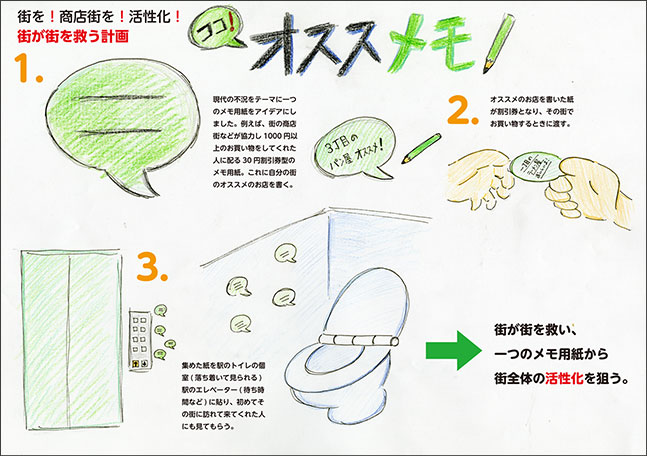 街を！商店街を！活性化！
街が街を救う計画
ココ！
オススメモ！
1.
現代の不況をテーマに一つ
のメモ用紙をアイデアにし
ました。例えば、街の商店
街などが協力し1000円以
上のお買い物をしてくれた
人に配る30円割引券型の
メモ用紙。これに自分の街
のオススメのお店を書く。
3丁目の
パン屋 オススメ！
2.
オススメのお店を書いた紙
が割引券となり、その街で
お買い物するときに渡す。
3.
集めた紙を駅のトイレの個
室(落ち着いて見られる)
駅のエレベーター(待ち時
間など)に貼り、初めてそ
の街に訪れて来てくれた人
にも見てもらう。
街が街を救い、
一つのメモ用紙から
街全体の活性化を狙う。